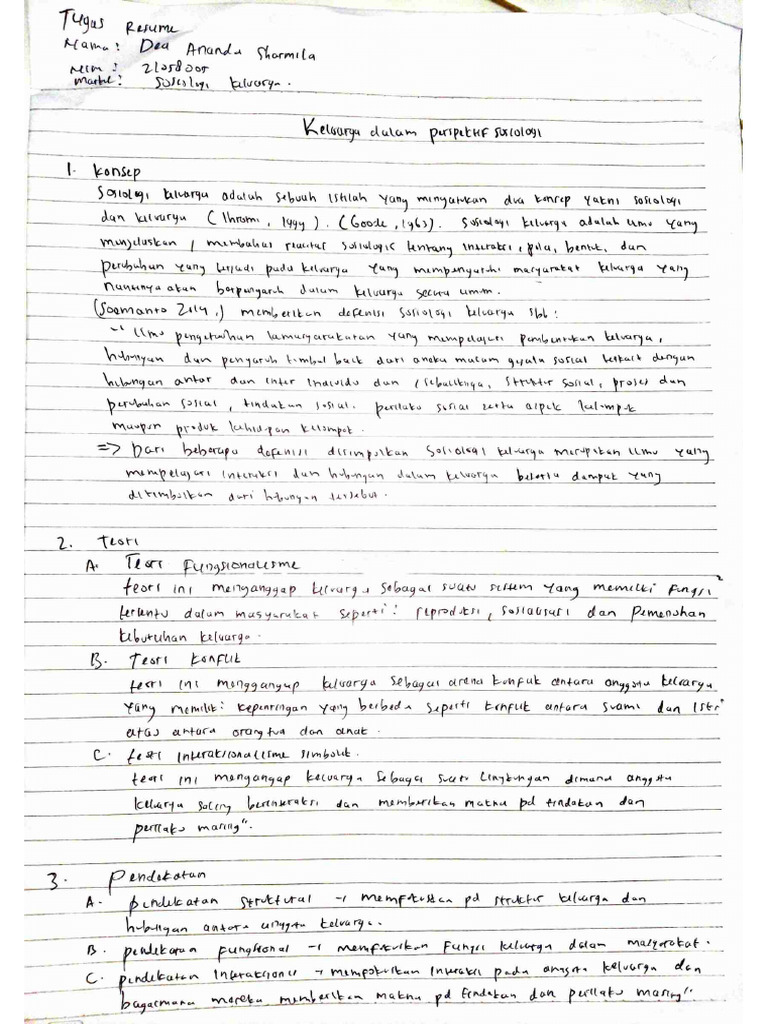 Tugas Resume
Nama : Dea Ananda Sharmila
Nim : 21058005
Matkul : Sosiologi keluarga.
Keluarga dalam perspektif sosiologi
1. Konsep
Sosiologi keluarga adalah sebuah istilah yang menyatukan dua konsep yakni sosiologi
dan keluarga (Ihromi, 1999). (Goode, 1963). Sosiologi keluarga adalah ilmu yang
menjelaskan / membahas realitas sosiologis tentang interaksi, pola, bentuk, dan
perubahan yang terjadi pada keluarga yang mempengaruhi masyarakat keluarga yang
nantinya akan berpengaruh dalam keluarga secara umum.
(Soemanto 2014,) memberikan defenisi sosiologi keluarga sbb :
-" Ilmu pengetahuan kemasyarakatan yang mempelajari pembentukan keluarga,
hubungan dan pengaruh timbal balik dari aneka macam gejala sosial terkait dengan
hubungan antar dan inter individu dan / sebaliknya, struktur sosial, proses dan
perubahan sosial, tindakan sosial. perilaku sosial serta aspek kelompok
maupun produk kehidupan kelompok.
=> Dari beberapa defenisi disimpulkan sosiologi keluarga merupakan ilmu yang
mempelajari interaksi dan hubungan dalam keluarga beserta dampak yang
ditimbulkan dari hubungan tersebut.
2. Teori
A. Teori Fungsionalisme
teori ini menganggap keluarga sebagai suatu sistem yang memiliki fungsi²
tertentu dalam masyarakat seperti : reproduksi, sosialisasi dan pemenuhan
kebutuhan keluarga.
B. Teori Konflik
teori ini menganggap keluarga sebagai arena konflik antara anggota keluarga
yang memiliki kepentingan yang berbeda seperti konflik antara suami dan Istri
atas antara orangtua dan anak.
C. teori interaksionalisme simbolik.
teori ini mengangap keluarga sebagai suatu lingkungan dimana anggota
keluarga saling berinteraksi dan memberikan makna pd tindakan dan
perilaku masing".
3. Pendekatan
A. pendekatan struktural -> memfokuskan pd struktur keluarga dan
hubungan antara anggota keluarga.
B. pendekatan fungsional -> memfokuskan fungsi keluarga dalam masyarakat.
C. pendekatan Interaksionis -> mempokuskan interaksi pada anggota keluarga dan
bagaimana mereka memberikan makna pd tindakan dan perilaku masing".